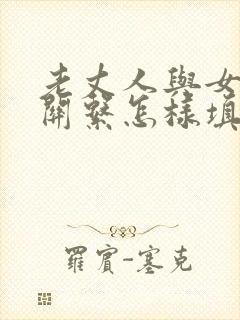 老丈人與女
關繫怎樣填
羅賓-塞克